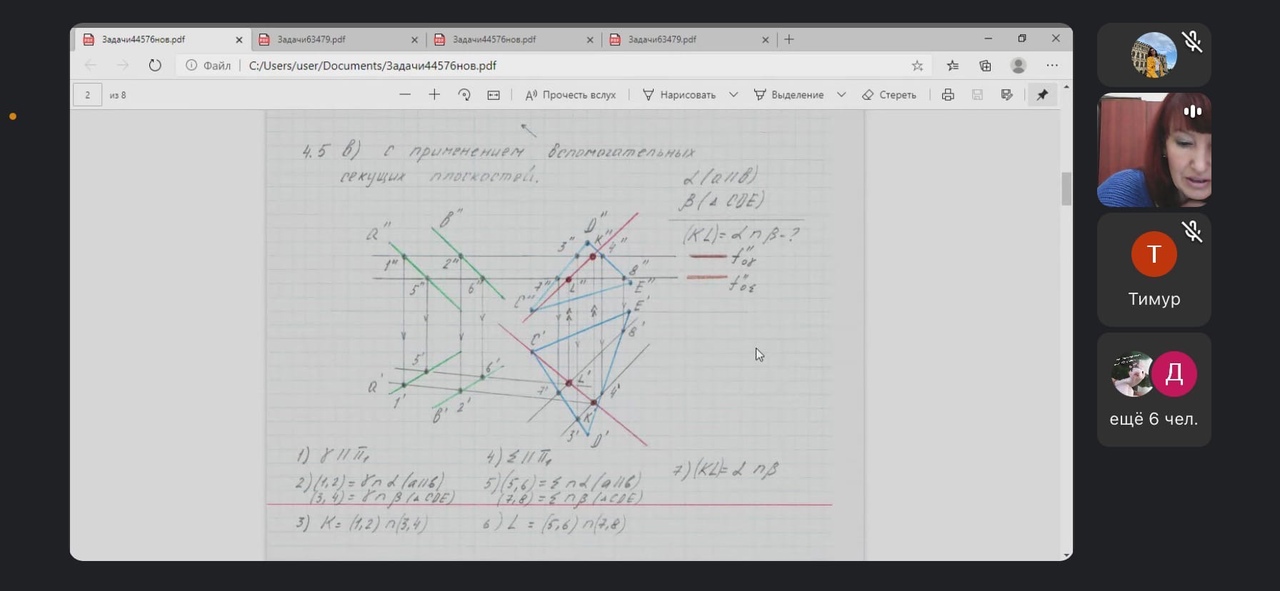 Задачи44576нов.pdf
Задачи63479.pdf
Задачи44576нов.pdf
Задачи63479.pdf
Файл
C:/Users/user/Documents/Задачи44576нов.pdf
2 из 8
Прочесть вслух
Нарисовать
Выделение
Стереть
4.5 в) с применением вспомогательных
секущих плоскостей.
α (a // b)
β (△ CDE)
(KL) = α ∩ β - ?
f''₀γ
f''₀Σ
a''
B''
D''
1''
2''
3''
K''
4''
5''
6''
7''
L''
8''
C''
E''
E'
C'
8'
5'
6'
L'
a'
1'
B'
2'
7'
4'
K
3'
D'
1) γ // π₁
2) (1,2) = γ ∩ α (a // b)
(3,4) = γ ∩ β (△ CDE)
3) K = (1,2) ∩ (3,4)
4) Σ // π₁
5) (5,6) = Σ ∩ α (a // b)
(7,8) = Σ ∩ β (△ CDE)
6) L = (5,6) ∩ (7,8)
7) (KL) = α ∩ β
Т
Тимур
Д
ещё 6 чел.